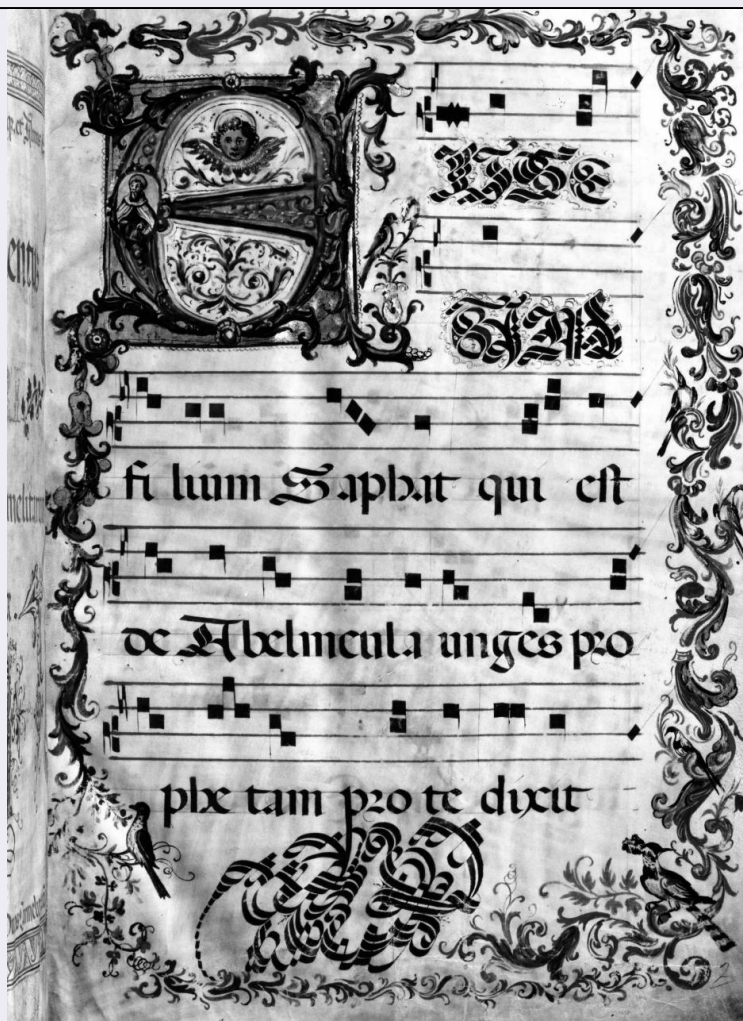 E LISE
fi lium Saphat qui est
de Abelmeula unges pro
phe tam pro te dixit